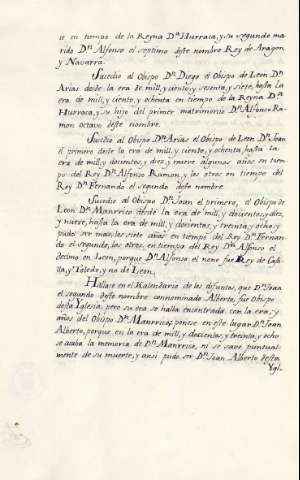 te en tiempo de la Reyna Dª Hurraca, y su segundo ma
rido Dⁿ Alfonso el septimo deste nombre Rey de Aragon
y Navarra.
Sucedio al Obispo Dⁿ Diego el Obispo de Leon Dⁿ
Arias desde la era de mill, y ciento, y sesenta, y siete, hasta la
era de mill, y ciento, y ochenta en tiempo de la Reyna Dª
Hurraca, y su hijo del primer matrimonio Dⁿ Alfonso Ra
mon octavo deste nombre.
Sucedio al Obispo Dⁿ Arias el Obispo de Leon Dⁿ Joan
el primero desde la era de mill, y ciento, y ochenta, hasta la
era de mill, y docientos, y diez, y nueve algunos años en tiem
po del Rey Dⁿ Alfonso Ramon, y los otros en tiempo del
Rey Dⁿ Fernando el segundo deste nombre.
Sucedio al Obispo Dⁿ Joan el primero, el Obispo de
Leon Dⁿ Manrrico desde la era de mill, y docientos, y diez,
y nueve, hasta la era de mill, y docientos, y trenta, y ocho, y
pudo ser mas, los siete años en tiempo del Rey Dⁿ Fernan
do el segundo, los otros, en tiempo del Rey Dⁿ Alfonso el
decimo en Leon, porque Dⁿ Alfonso el nono fue Rey de Casti
lla, y Toledo, y no de Leon.
Hallase en el Kalendario de los difuntos, que Dⁿ Joan
el segundo deste nombre connominado Alberto, fue Obispo
desta Yglesia, pero su era se halla encontrada con la era, y
años del Obispo Dⁿ Manrrico; ponese en este lugar Dⁿ Joan
Alberto, porque en la era de mill, y docientos, y treinta, y ocho
se acaba la memoria de Dⁿ Manrrico, ni se save puntual
mente de su muerte, y ansi pudo ser Dⁿ Joan Alberto desta
Ygl-